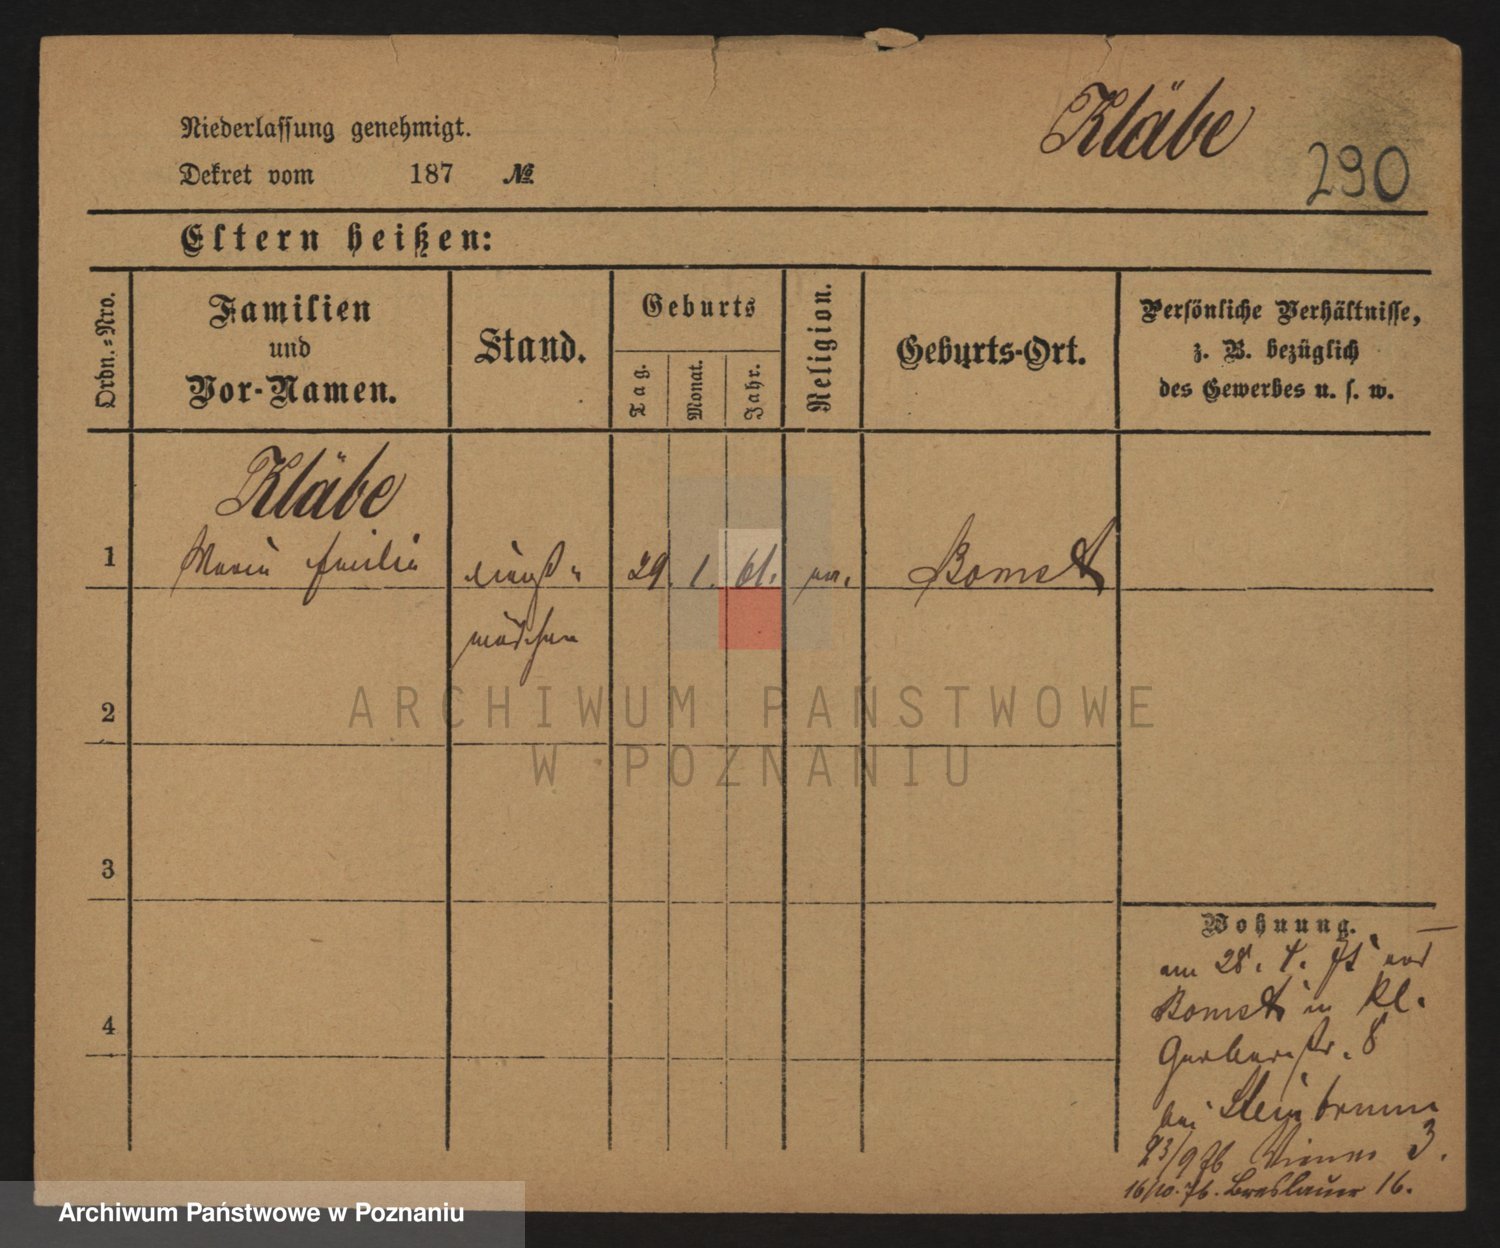 Kläbe
290
Niederlassung genehmigt.
Dekret vom 187 №
Eltern heißen:
Ordn.-Nro.
Familien
und
Vor-Namen.
Stand.
Geburts
Tag.
Monat.
Jahr.
Religion.
Geburts-Ort.
Persönliche Verhältnisse,
z. B. bezüglich
des Gewerbes u. s. w.
Kläbe
1 Maria Emilie Dienst- 29. 1. 61. ev. Bomst
mädchen
2
3
4
Wohnung.
am 28. 4. aus
Bomst in Kl.
Gerberstr. 8
bei Steinbrunn
23/9 76 3.
16/10. 76. Breslauer 16.
ARCHIWUM PAŃSTWOWE
W POZNANIU
Archiwum Państwowe w Poznaniu